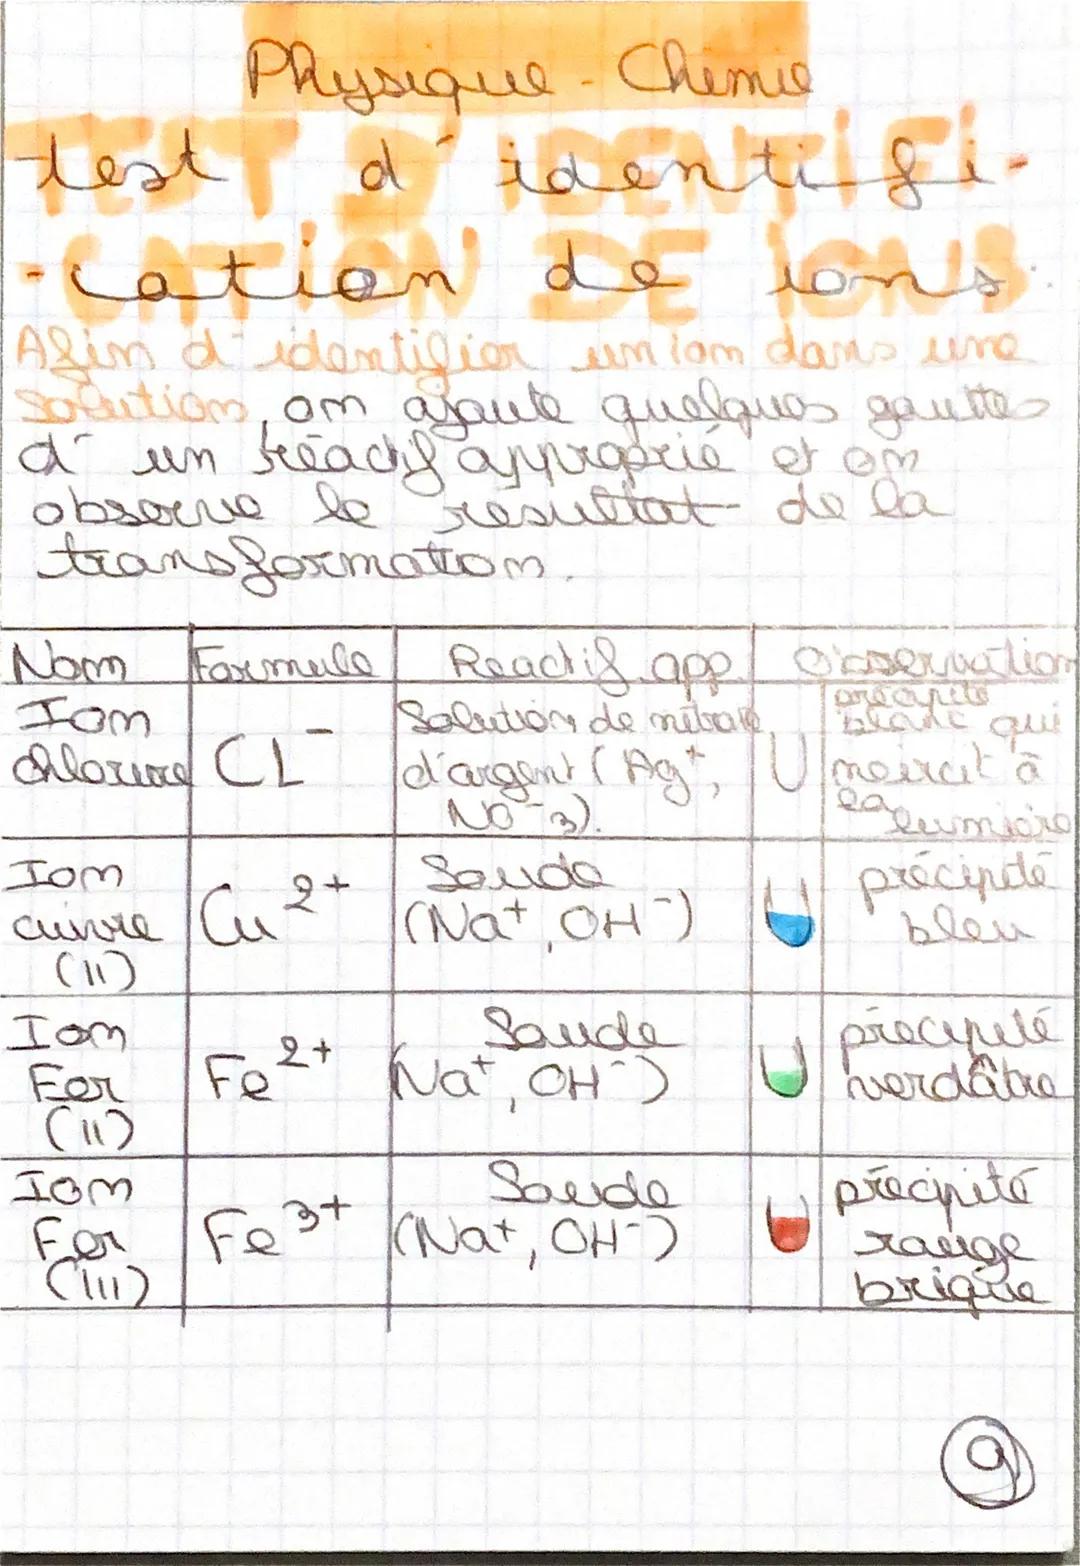 Physique - Chimie
TEST D'IDENTIFI-
test d'identifi-
-CATION DE IONS
-cation de ions.
Afin d'identifier un ion dans une
solution, on ajoute quelques gouttes
d'un réactif approprié et on
observe le resultat de la
transformation.
Nom Formule Reactif app. Observation
Ion chlorure
CL⁻
Solution de nitrate
d'argent (Ag⁺,
NO⁻3).
précipité
blanc qui
noircit à
la lumière
Ion
cuivre
(II)
Cu²⁺
Soude
(Na⁺, OH⁻)
précipité
bleu
Ion
Fer
(II)
Fe²⁺
Soude
(Na⁺, OH⁻)
précipité
verdâtre
Ion
Fer
(III)
Fe³⁺
Soude
(Na⁺, OH⁻)
précipité
rouge
brique
9